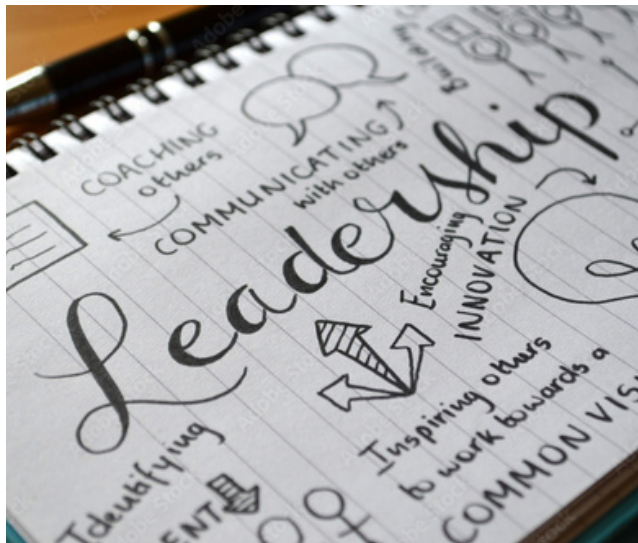 COACHING
others
COMMUNICATING
with others
Building
Leadership
Encouraging
INNOVATION
Inspiring others
to work towards a
COMMON
Identifying